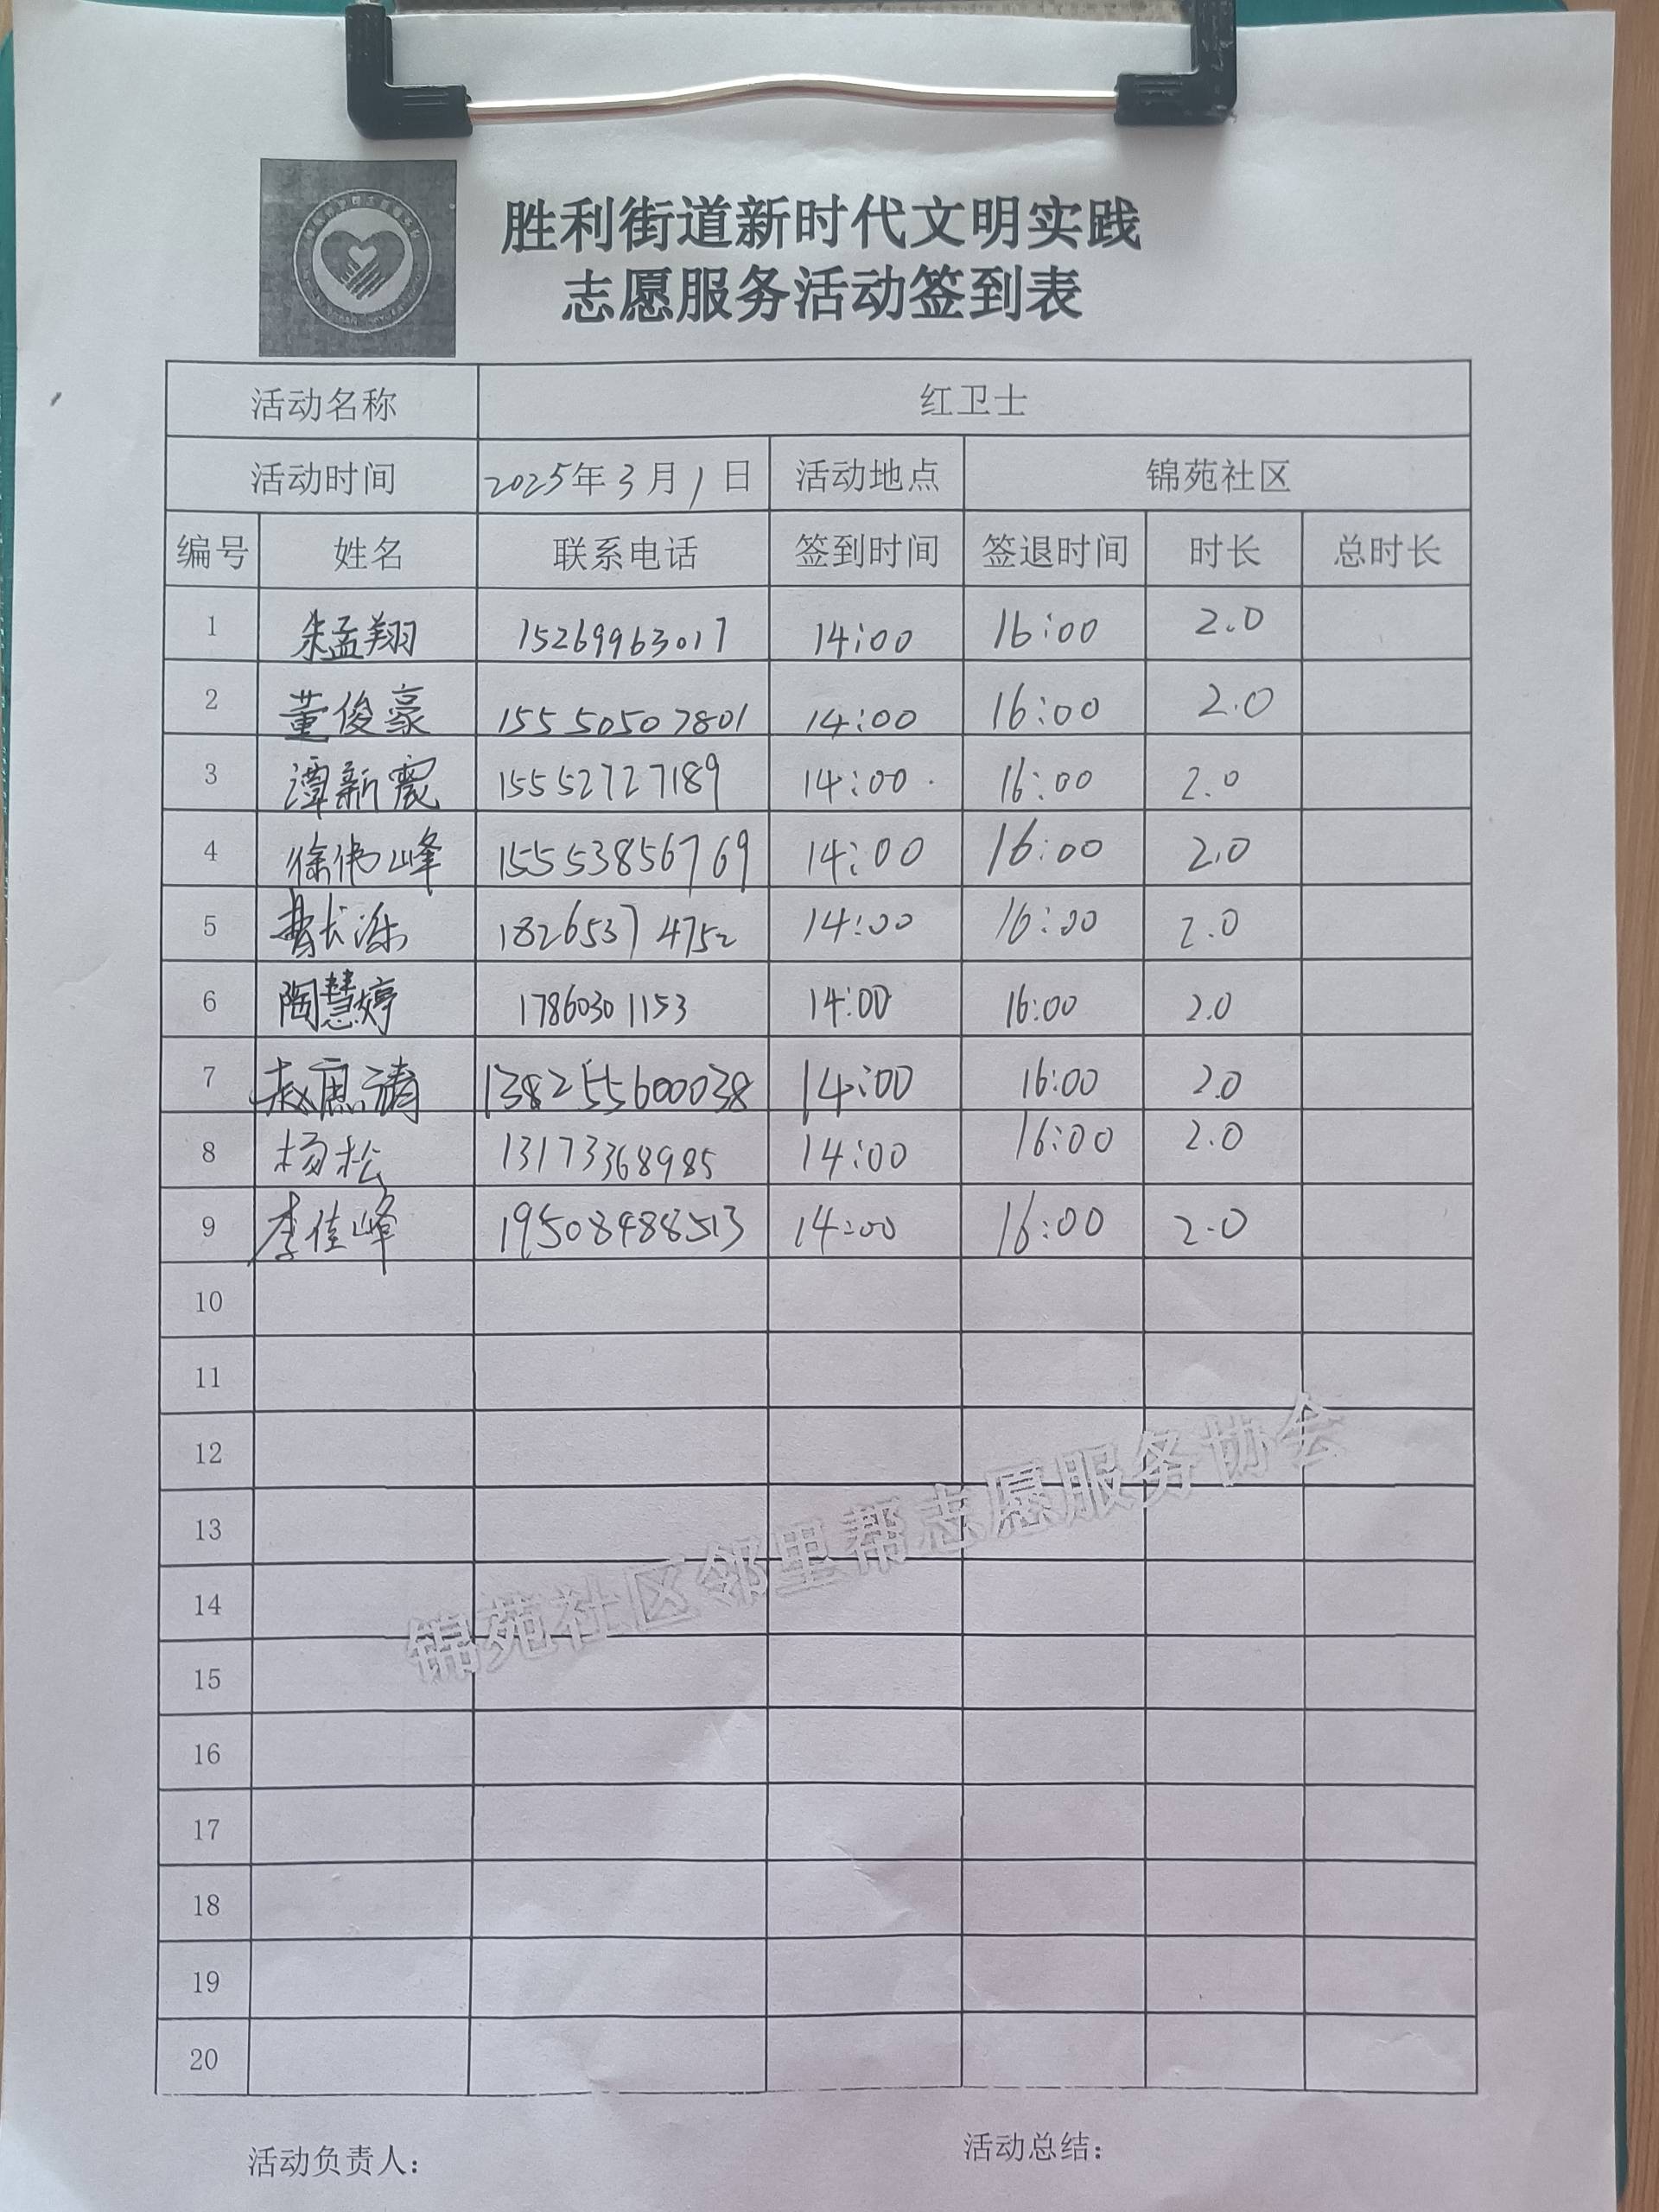 胜利街道新时代文明实践
志愿服务活动签到表
活动名称 红卫士
活动时间 2025年3月1日 活动地点 锦苑社区
编号 姓名 联系电话 签到时间 签退时间 时长 总时长
1 朱孟翔 15269963017 14:00 16:00 2.0
2 董俊豪 15550507801 14:00 16:00 2.0
3 谭新震 15552727189 14:00 16:00 2.0
4 徐伟峰 15553856769 14:00 16:00 2.0
5 18265374752 14:00 16:00 2.0
6 陶慧婷 17860301153 14:00 16:00 2.0
7 138255600038 14:00 16:00 2.0
8 杨松 13173368985 14:00 16:00 2.0
9 李佳峰 19508488513 14:00 16:00 2.0
10
11
12
13
14
15
16
17
18
19
20
锦苑社区邻里帮志愿服务协会
活动负责人: 活动总结: